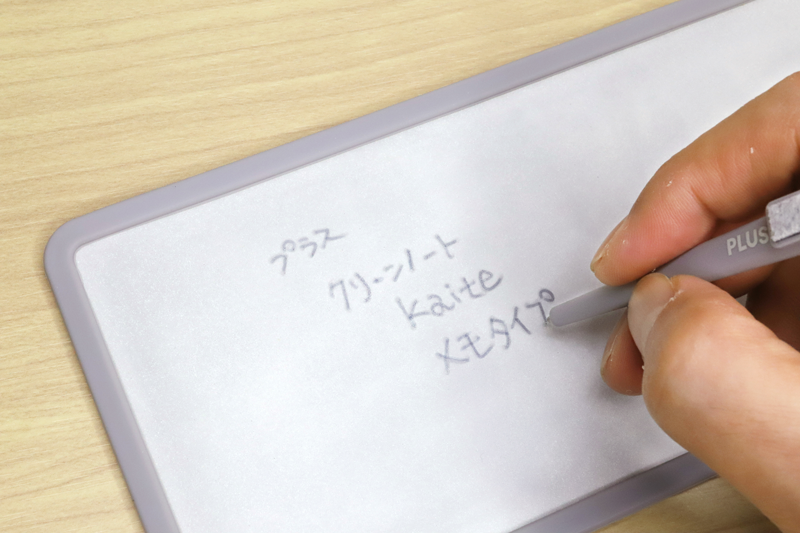 プラス
クリーンノート
Kaite
メモタイプ
PLUS